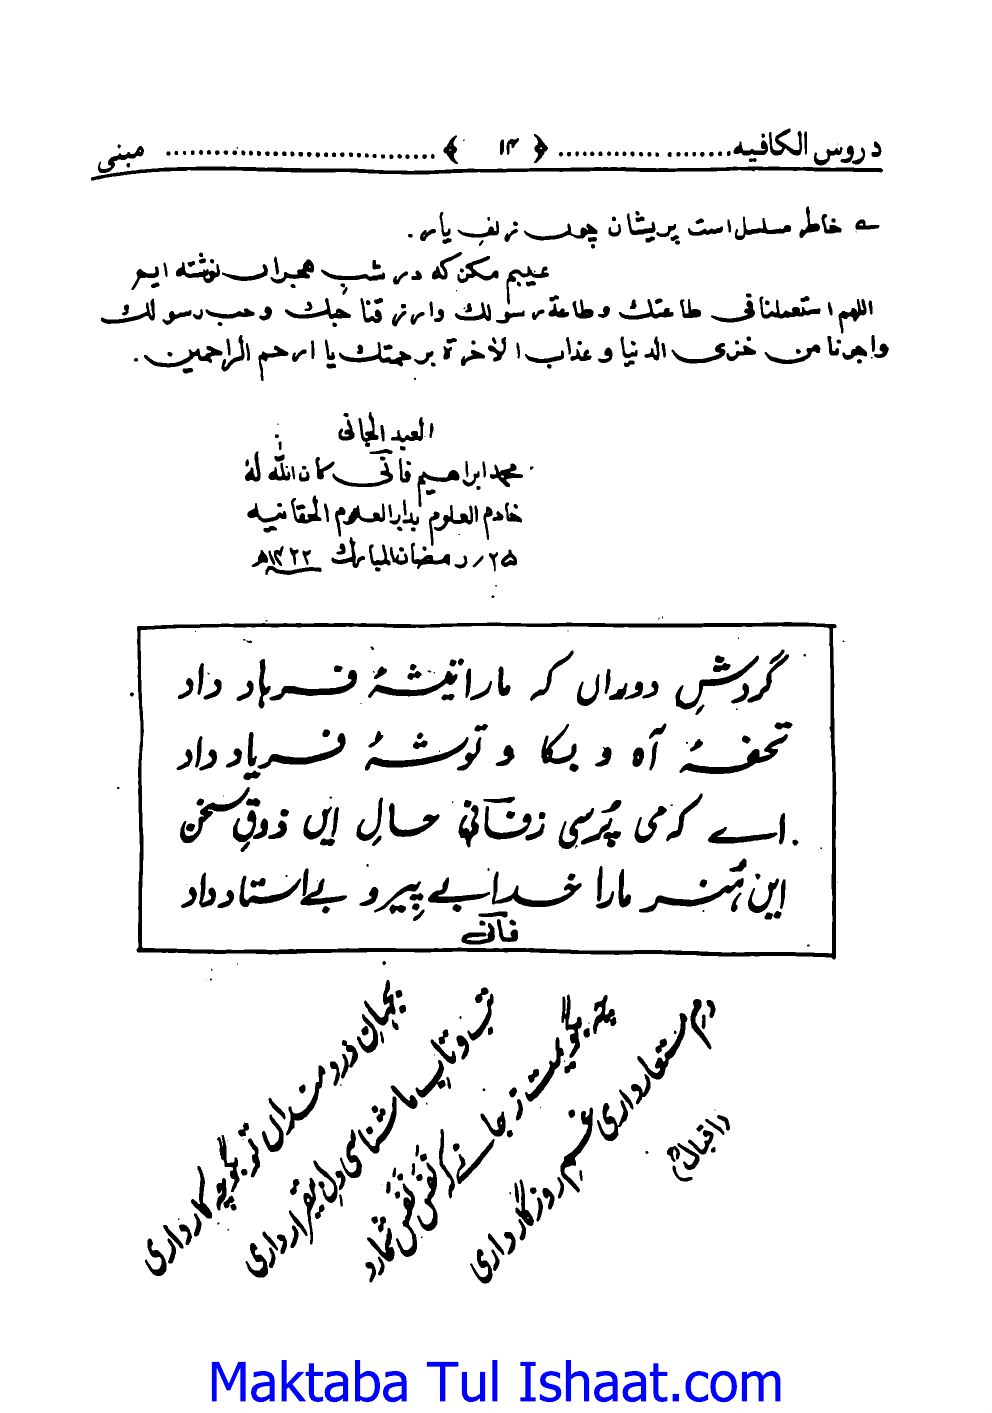 دروس الکافیہ ........ ............. ﴿ ۱۴ ﴾ ............................... مبنی
؎ خاطر مسلسل است پریشان چوں زلفِ یار .
عیبم مکن کہ در شبِ ہجراں نوشتہ ایم
اللهم استعملنا فی طاعتك وطاعة رسولك وارزقنا حبك وحب رسولك
واجرنا من خزی الدنیا وعذاب الاخرة برحمتك یا ارحم الراحمین .
العبد الجانی
محمد ابراهیم فانی کان اللہ لہٗ
خادم العلوم بدارالعلوم الحقانیہ
۲۵؍رمضان المبارك ۱۴۲۲ھ
گردشِ دوراں کہ مارا تیشۂ فرہاد داد
تحفۂ آہ و بکا و توشۂ فریاد داد
اے کہ می پُرسی ز فانی حالِ ایں ذوقِ سخن
این ہُنر مارا خدا بے پیر و بے استاد داد
فانی
بجہانِ دردمنداں تو بگو چہ کار داری
تب و تابِ ما شناسی دلِ بیقرار داری
چہ بگویمت ز جانے کہ نَفَس نَفَس شمارد
دمِ مستعار داری غمِ روزگار داری
(اقبالؒ)
Maktaba Tul Ishaat.com